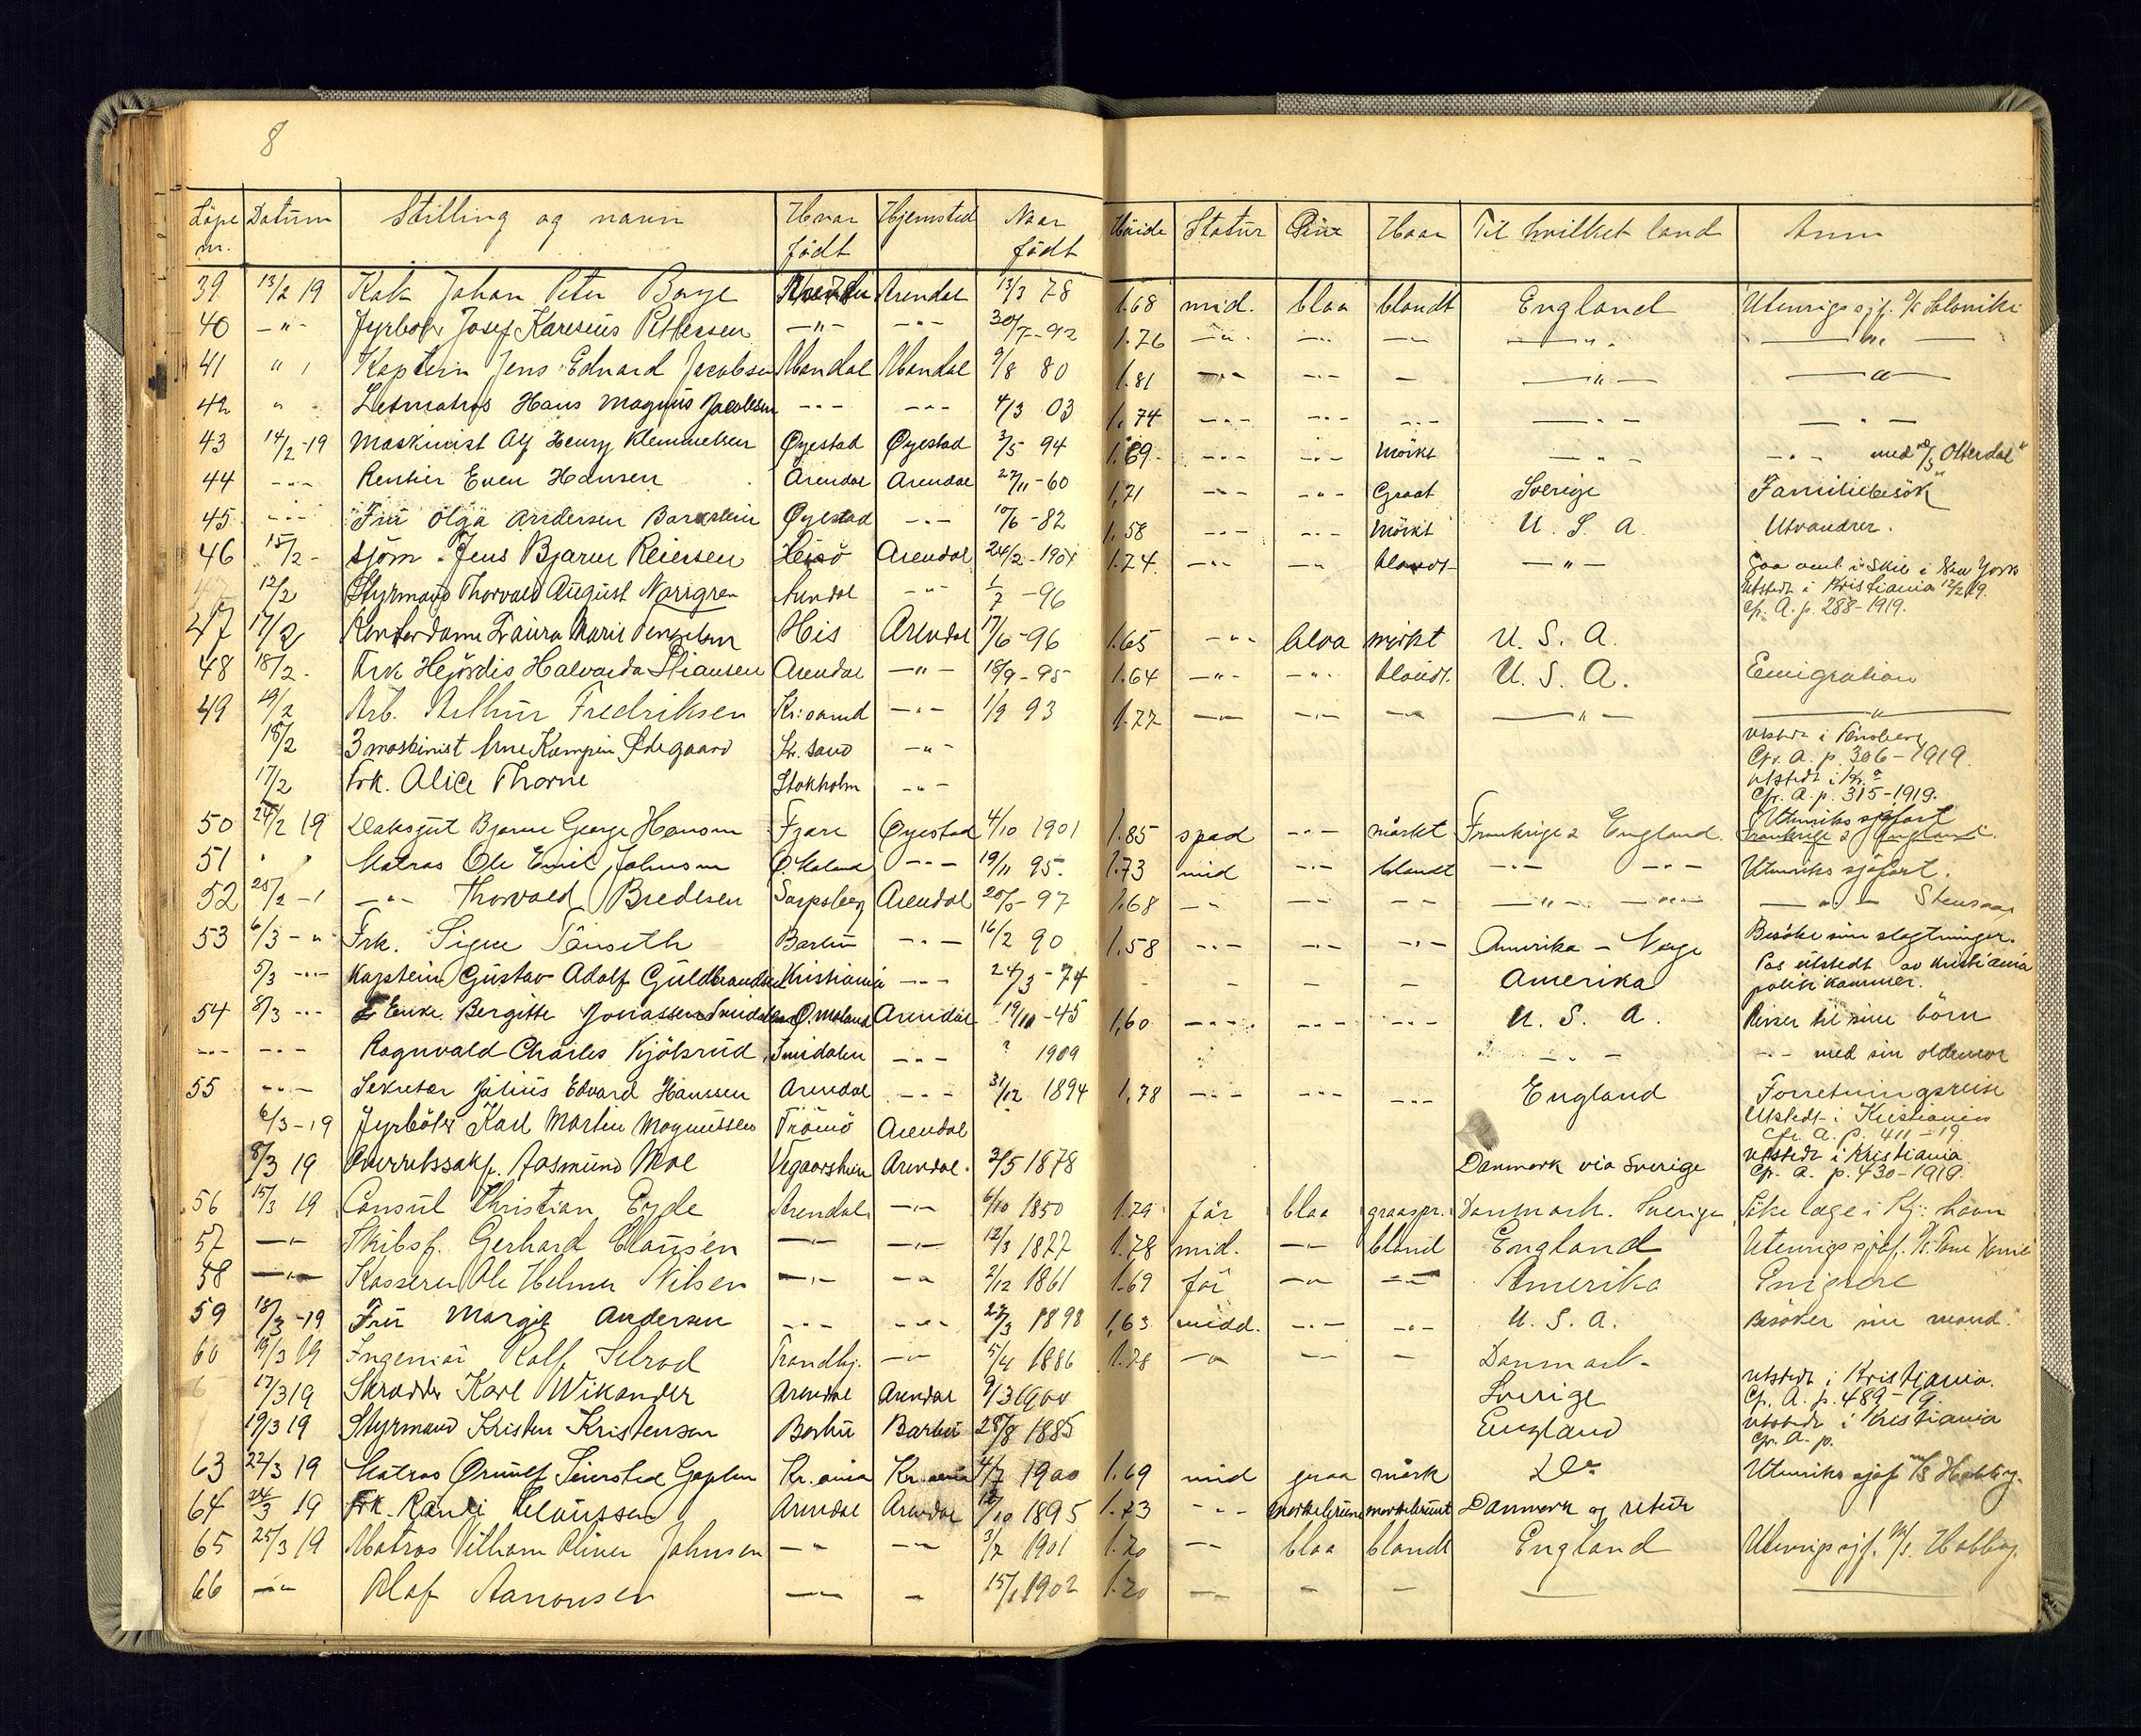 8
Löpe nr. Datum Stilling og navn Hvor födt Hjemsted Naar födt Höide Statur Öine Haar Til hvilket land Anm
39 13/2 19 Kok Johan Peter Borge Arendal 13/3 78 1.68 mid. blaa blondt England Utenrigs sjf. Saloniki
40 -"- Fyrböter Josef Karenius Pettersen -"- -"- 30/7-92 1.76 -"- -"- -"- -"- -"-
41 " " Kaptein Jens Edvard Jacobsen Mandal Mandal 9/8 80 1.81 -"- -"- - -"- -"-
42 " Letmatros Hans Magnus Jacobsen -"- -"- 4/3 03 1.74 -"- -"- -"- -"- -"-
43 14/2-19 Maskinist Alf Henry Klemmetsen Øyestad Øyestad 3/5 94 1.69 -"- -"- mörkt -"- -"- med D/S "Otterdal"
44 -"- Rentier Even Hansen Arendal Arendal 27/11-60 1.71 -"- -"- Graat Sverige Familiebesök
45 -"- Fru Olga Andersen Øyestad -"- 10/6-82 1.58 -"- -"- mörkt U. S. A. Utvandrer.
46 15/2- sjöm. Jens Bjarne Reiersen Hisö Arendal 24/2-1901 1.74 -"- -"- blondt -"- Gaa omb i Skib i New York
12/2 Styrmand Thorvald August Norrgren Arendal -"- 1/7-96 Utstedt i Kristiania 12/2 19. cfr. A. p. 288-1919.
47 17/2 Kontordame Laura Marie His Arendal 17/6-96 1.65 -"- blaa mörkt U. S. A.
48 18/2. Frk Hejördis Halvarda Stiansen Arendal -"- 18/9-95 1.64 -"- -"- blondt. U. S. A. Emigration
49 19/2 Arb. Arthur Fredriksen Kr:sand -"- 1/9 93 1.77 -"- -"- -"- -"- -"-
18/2 3 maskinist Arne Kampin Ødegaard Kr. sand -"- Utstedt i Tönsberg Cfr. A. p. 306-1919.
17/2 Frk. Alice Thorne Stokholm -"- utstedt i Kr.a Cfr. A. p. 315-1919.
50 24/2 19 Daksgut Bjarne George Hansen Fjære Øyestad 4/10 1901 1.85 spæd -"- mörkt Frankrige & England Utenriks sjöfart Frankrige & England.
51 " " Matros Ole Emil Johnsen Ø. Moland -"- 19/11 95. 1.73 mid -"- blondt -"- -"- Utenriks sjöfart.
52 25/2-" -"- Thorvald Bredesen Sarpsborg Arendal 20/5-97 1.68 -"- -"- -"- -"- -"- -"- Stensaas
53 6/3-" Frk. Signe Tänseth Barbu -"- 16/2 90 1.58 -"- -"- -"- Amerika - Norge Besöke sine slegtninger.
5/3 -"- Kaptein Gustav Adolf Guldbrandsen Kristiania -"- 24/3-74 - - - - Amerika Pas utstedt av Kristiania politikammer.
54 8/3 -"- Enke Bergitte Jonassen Smidalen Ø. Moland Arendal 19/11-45 1.60 -"- -"- -"- U. S. A. Reiser til sine börn
-"- -"- Ragnvald Charles Kjölsrud Smidalen -"- ? 1909 -"- -"- med sin oldemor
55 -"- Sekretær Julius Edvard Hanssen Arendal -"- 31/12 1894 1.78 -"- -"- -"- England Forretningsreise
6/3-19 Fyrböter Karl Martin Magnussen Tromö Arendal Utstedt i Kristiania Cfr. A. p. 411-19.
8/3 19 Overretssakf. Aasmund Moe Vegaarshein Arendal. 2/5 1878 Danmark via Sverige Utstedt i Kristiania Cfr. A. p. 430-1919.
56 15/3 19 Consul Christian Eyde Arendal -"- 6/10 1850 1.79 för blaa graaspr. Danmark. Sverige Söke læge i Kj:havn
57 -"- Skibsf. Gerhard Clausen -"- -"- 12/3 1877 1.78 mid. -"- blond England Utenrigs sjöf.
58 -"- Kasserer Ole Helmer Nilsen -"- -"- 2/12 1861 1.69 för -"- -"- Amerika Emigrere
59 18/3-19 Fru Margit Andersen -"- -"- 27/3 1898 1.63 midd. -"- -"- U. S. A. Besöker sin mand.
60 19/3 19 Ingeniör Rolf Selrod Trondhj. -"- 5/4 1886 1.78 -"- -"- - Danmark
17/3 19 Skrædder Karl Wikander Arendal Arendal 9/3 1900 Sverige utstedt i Kristiania. Cfr. A. p. 489-19.
19/3 19 Styrmand Kristen Kristensen Barbu Barbu 28/8 1885 England utstedt i Kristiania cfr. A. p.
63 22/3 19 Matros Ørnulf Kr.ania Kr.ania 4/7 1900 1.69 mid graa mörk Do Utenriks sjöf
64 24/3 19 Frk. Randi Claussen Arendal Arendal 12/10 1895 1.73 -"- mörkebrune mörkebrunt Danmark og retur
65 25/3 19 Matros Vilham Oliver Johnsen -"- -"- 3/7 1901 1.70 -"- blaa blondt England Utenrigs sjf.
66 -"- Olaf Aanonsen -"- - 15/1 1902 1.70 -"- - - - -